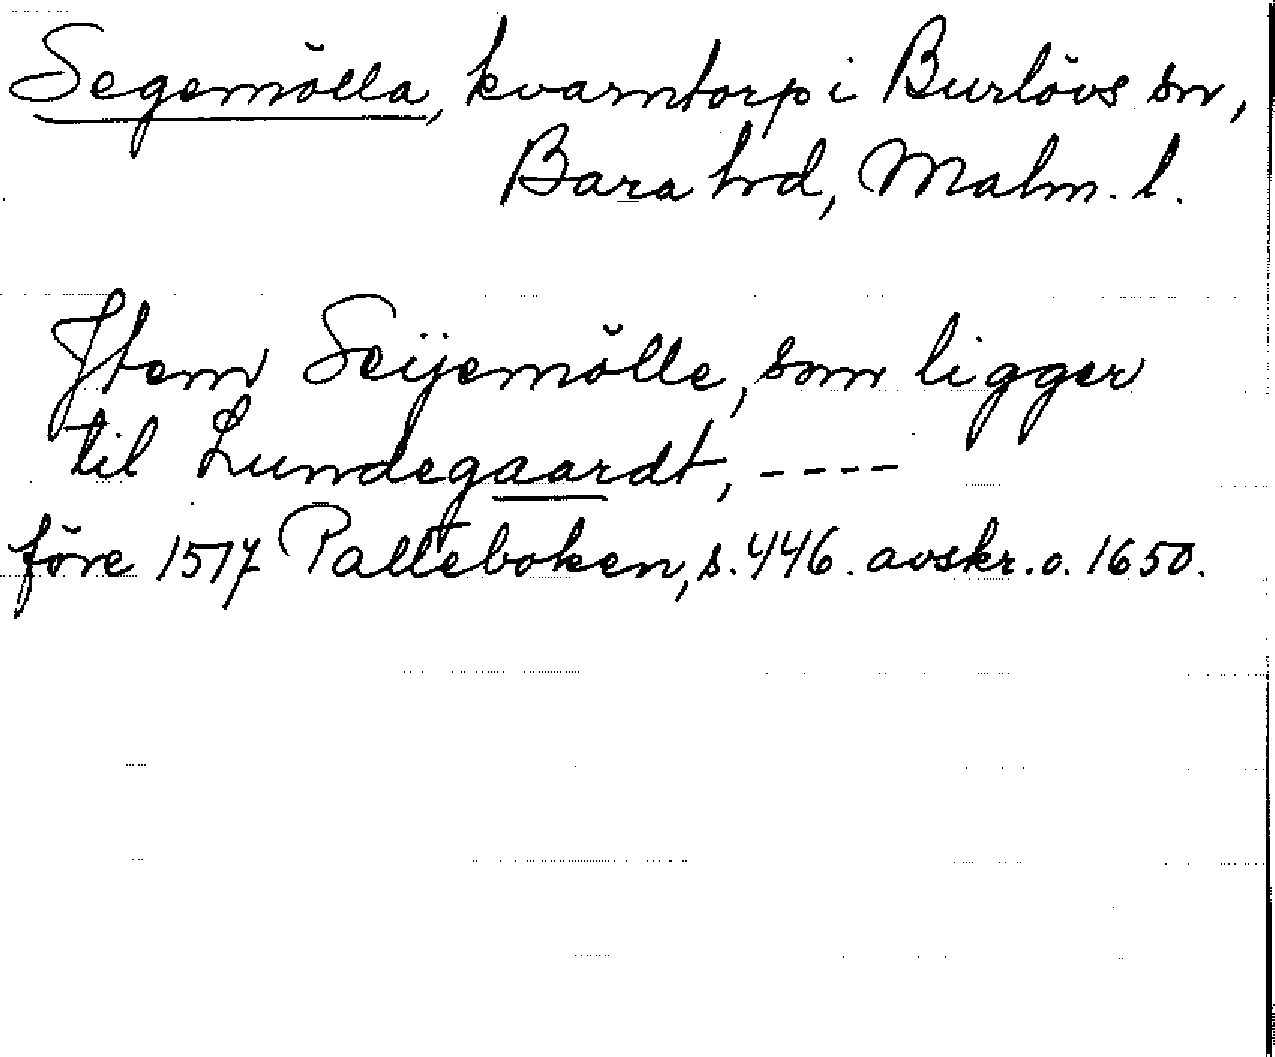 Segemölla, kvarntorp i Burlövs sn,
Bara hrd, Malm. l.
Jtem Seijemölle, som ligger
til Lundegaardt, ----
före 1517 Palteboken, s. 446. avskr. o. 1650.